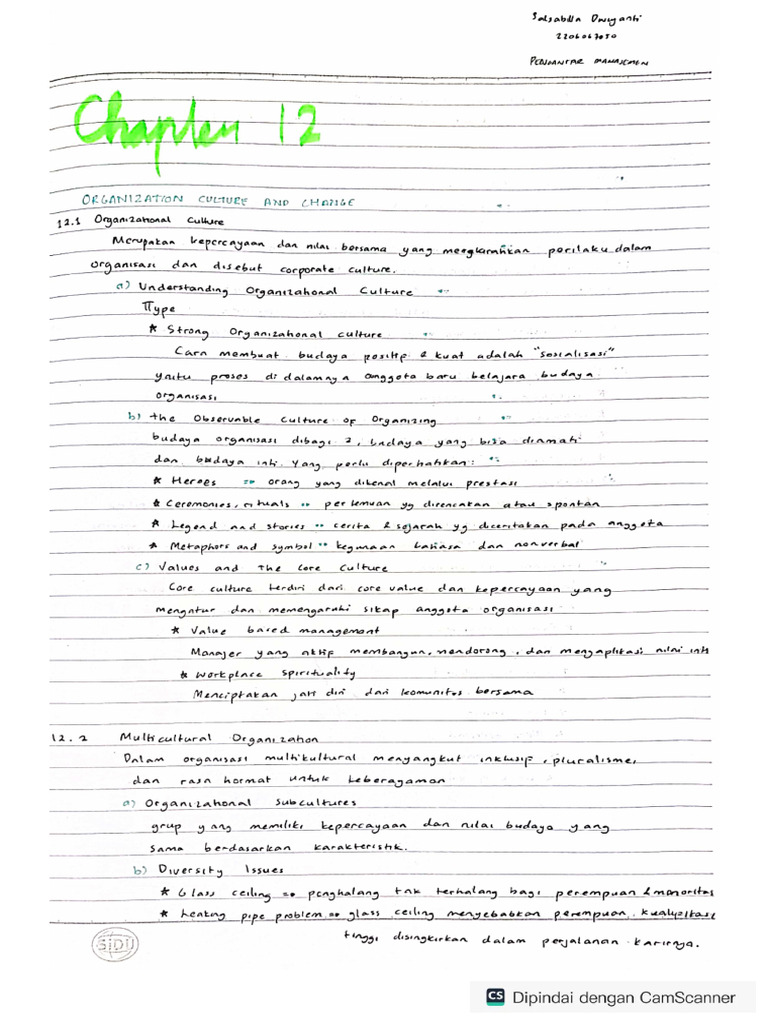 Salsabilla Dwiyanti
2206067050
PENGANTAR MANAJEMEN
Chapter 12
ORGANIZATION CULTURE AND CHANGE
12.1 Organizational Culture
Merupakan kepercayaan dan nilai bersama yang mengarahkan perilaku dalam
organisasi dan disebut corporate culture.
a) Understanding Organizational Culture
Type
* Strong Organizational culture
Cara membuat budaya positif & kuat adalah "sosialisasi"
yaitu proses di dalamnya anggota baru belajara budaya
organisasi
b) the Observable Culture of Organizing
budaya organisasi dibagi 2, budaya yang bisa diamati
dan budaya inti. Yang perlu diperhatikan:
* Heroes => orang yang dikenal melalui prestasi
* Ceremonies, rituals => pertemuan yg direncakan atau spontan
* Legend and stories => cerita & sejarah yg diceritakan pada anggota
* Metaphors and symbol => kegunaan bahasa dan nonverbal
c) Values and the core culture
Core culture terdiri dari core value dan kepercayaan yang
mengatur dan memengaruhi sikap anggota organisasi
* Value based management
Manajer yang aktif membangun, mendorong, dan mengaplikasi nilai inti
* Workplace spirituality
Menciptakan jati diri dari komunitas bersama
12.2 Multicultural Organization
Dalam organisasi multikultural menyangkut inklusif, pluralisme,
dan rasa hormat untuk keberagaman
a) Organizational subcultures
grup yang memiliki kepercayaan dan nilai budaya yang
sama berdasarkan karakteristik.
b) Diversity Issues
* Glass ceiling => penghalang tak terhalang bagi perempuan & minoritas
* Leaking pipe problem => glass ceiling menyebabkan perempuan kualifikasi
tinggi disingkirkan dalam perjalanan karirnya.
SIDU
CS Dipindai dengan CamScanner